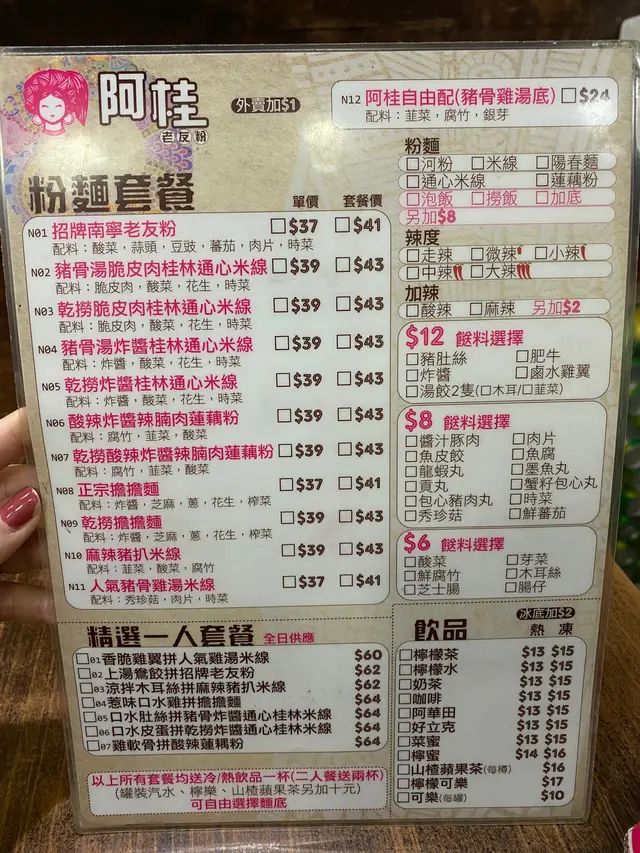 阿桂
老友粉
外賣加$1
N12 阿桂自由配(豬骨雞湯底) □$24
配料：韮菜，腐竹，銀芽
粉麵套餐
單價 套餐價
N01 招牌南寧老友粉 □$37 □$41
配料：酸菜，蒜頭，豆豉，蕃茄，肉片，時菜
N02 豬骨湯脆皮肉桂林通心米線 □$39 □$43
配料：脆皮肉，酸菜，花生，時菜
N03 乾撈脆皮肉桂林通心米線 □$39 □$43
配料：脆皮肉，酸菜，花生，時菜
N04 豬骨湯炸醬桂林通心米線 □$39 □$43
配料：炸醬，酸菜，花生，時菜
N05 乾撈炸醬桂林通心米線 □$39 □$43
配料：炸醬，酸菜，花生，時菜
N06 酸辣炸醬辣腩肉蓮藕粉 □$39 □$43
配料：腐竹，韮菜，酸菜
N07 乾撈酸辣炸醬辣腩肉蓮藕粉 □$39 □$43
配料：腐竹，韮菜，酸菜
N08 正宗擔擔麵 □$37 □$41
配料：炸醬，芝麻，蔥，花生，榨菜
N09 乾撈擔擔麵 □$39 □$43
配料：炸醬，芝麻，蔥，花生，榨菜
N10 麻辣豬扒米線 □$39 □$43
配料：韮菜，酸菜，腐竹
N11 人氣豬骨雞湯米線 □$37 □$41
配料：秀珍菇，肉片，時菜
粉麵
□河粉 □米線 □陽春麵
□通心米線 □蓮藕粉
□泡飯 □撈飯 □加底
另加$8
辣度
□走辣 □微辣 □小辣
□中辣 □大辣
加辣
□酸辣 □麻辣 另加$2
$12 餸料選擇
□豬肚絲 □肥牛
□炸醬 □鹵水雞翼
□湯餃2隻(□木耳/□韮菜)
$8 餸料選擇
□醬汁豚肉 □肉片
□魚皮餃 □魚腐
□龍蝦丸 □墨魚丸
□貢丸 □蟹籽包心丸
□包心豬肉丸 □時菜
□秀珍菇 □鮮蕃茄
$6 餸料選擇
□酸菜 □芽菜
□鮮腐竹 □木耳絲
□芝士腸 □腸仔
精選一人套餐 全日供應
□01香脆雞翼拼人氣雞湯米線 $60
□02上湯鴛餃拼招牌老友粉 $62
□03涼拌木耳絲拼麻辣豬扒米線 $62
□04惹味口水雞拼擔擔麵 $64
□05口水肚絲拼豬骨炸醬通心桂林米線 $64
□06口水皮蛋拼乾撈炸醬通心桂林米線 $64
□07雞軟骨拼酸辣蓮耦粉 $64
以上所有套餐均送冷/熱飲品一杯(二人餐送兩杯)
(罐裝汽水、檸樂、山楂蘋果茶另加十元)
可自由選擇麵底
飲品
冰底加$2
熱 凍
□檸檬茶 $13 $15
□檸檬水 $13 $15
□奶茶 $13 $15
□咖啡 $13 $15
□阿華田 $13 $15
□好立克 $13 $15
□菜蜜 $13 $15
□檸蜜 $14 $16
□山楂蘋果茶(每樽) $16
□檸檬可樂 $17
□可樂(每罐) $10